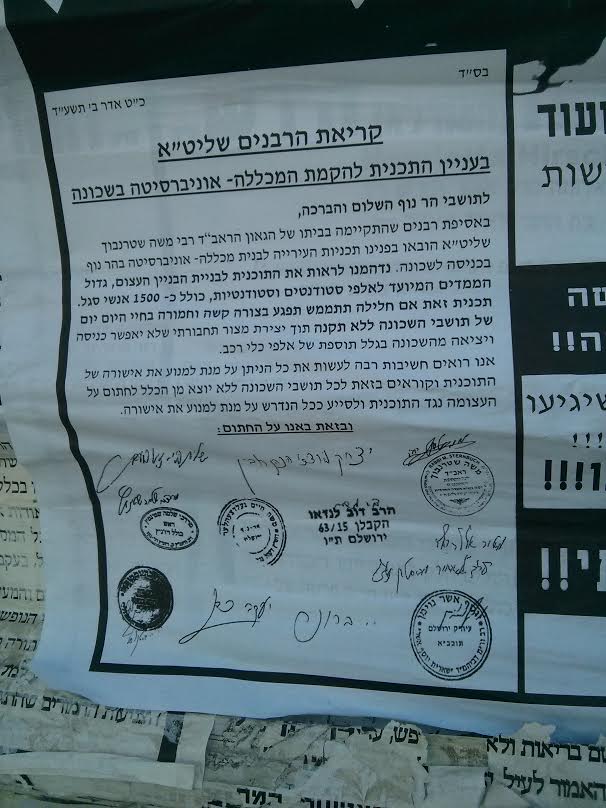 בס״ד
כ״ט אדר ב׳ תשע״ד
קריאת הרבנים שליט״א
בעניין התכנית להקמת המכללה- אוניברסיטה בשכונה
לתושבי הר נוף השלום והברכה,
באסיפת רבנים שהתקיימה בביתו של הגאון הראב״ד רבי משה שטרנבוך
שליט״א הובאו בפנינו תכניות העירייה לבנית מכללה- אוניברסיטה בהר נוף
בכניסה לשכונה. נדהמנו לראות את התוכנית לבניית הבניין העצום, גדול
הממדים המיועד לאלפי סטודנטים וסטודנטיות, כולל כ- 1500 אנשי סגל.
תכנית זאת אם חלילה תתממש תפגע בצורה קשה וחמורה בחיי היום יום
של תושבי השכונה ללא תקנה תוך יצירת מצור תחבורתי שלא יאפשר כניסה
ויציאה מהשכונה בגלל תוספת של אלפי כלי רכב.
אנו רואים חשיבות רבה לעשות את כל הניתן על מנת למנוע את אישורה של
התוכנית וקוראים בזאת לכל תושבי השכונה ללא יוצא מן הכלל לחתום על
העצומה נגד התוכנית ולסייע ככל הנדרש על מנת למנוע את אישורה.
ובזאת באנו על החתום:
משה שטרנבוך
ראב״ד
הרב דוב לנדאו
הקבלן 63/15
ירושלים ת״ו
ראש
כולל
יעקב כהן
אשר
עיה״ק ירושלים
תובב״א
ועוד
שות
שיגיעו
!!!
תי!!
פש,
שם בריאות ולא
האמור לעיל